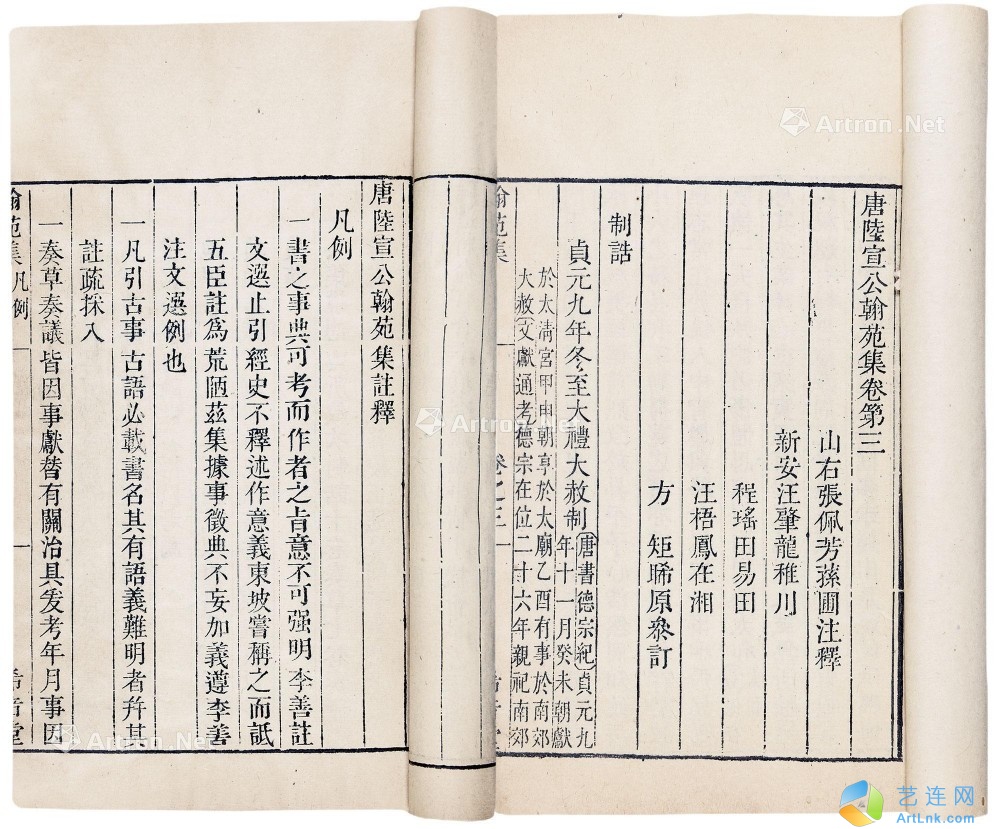 唐陸宣公翰苑集卷第三
山右張佩芳蓀圃注釋
新安汪肇龍稚川
程瑤田易田
汪梧鳳在湘
方矩晞原參訂
制誥
貞元九年冬至大禮大赦制唐書德宗紀貞元九
年十一月癸未朝獻
於太清宮甲申朝享於太廟乙酉有事於南郊
大赦文獻通考德宗在位二十六年親祀南郊
翰苑集
卷之三
一
希音堂
唐陸宣公翰苑集註釋
凡例
一書之事典可考而作者之旨意不可强明李善註
文選止引經史不釋述作意義東坡嘗稱之而詆
五臣註為荒陋茲集據事徵典不妄加義遵李善
注文選例也
一凡引古事古語必載書名其有語義難明者幷其
註疏採入
一奏草奏議皆因事獻替有關治具爰考年月事因
翰苑集
凡例
一
希音堂
Artron.Net
Artron.Net
Artron.Net
艺连网
ArtLnk.com